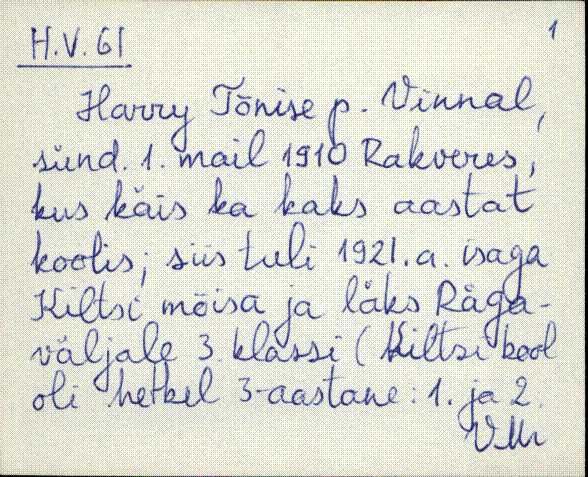 1
H.V. 61
Harry Tõnise p. Vinnal,
sünd. 1. mail 1910 Rakveres,
kus käis ka kaks aastat
koolis; siis tuli 1921. a. isaga
Kiltsi mõisa ja läks Räga-
väljale 3. klassi (Kiltsi kool
oli hetkel 3-aastane: 1. ja 2.